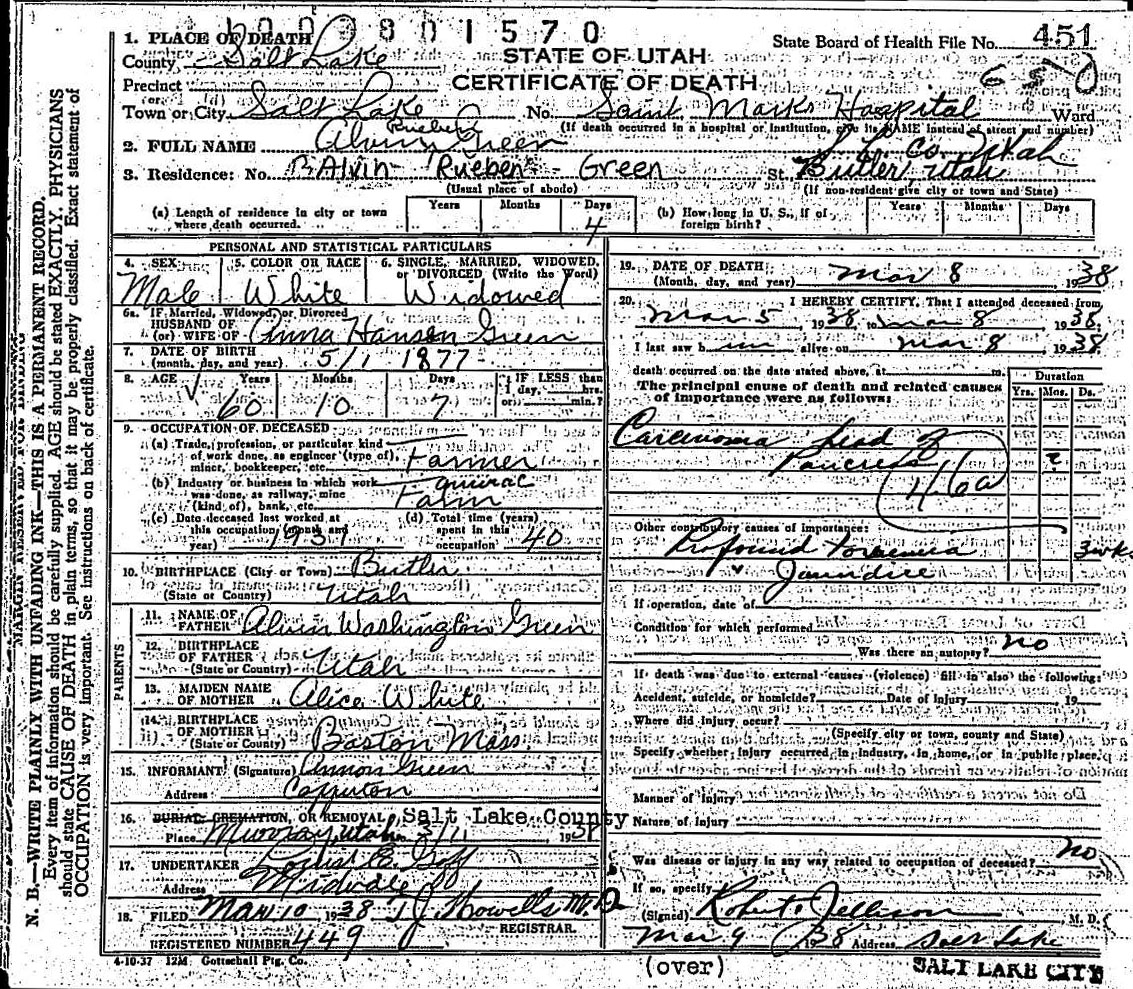 801570
1. PLACE OF DEATH
STATE OF UTAH
State Board of Health File No. 451
County Salt Lake
CERTIFICATE OF DEATH
Precinct
Town or City Salt Lake No. Saint Marks Hospital Ward
(If death occurred in a hospital or institution, give its NAME instead of street and number)
Rueben
2. FULL NAME Alvin Green
S. L. Co. Utah
3. Residence: No. Alvin Rueben Green St. Butler, Utah
(Usual place of abode) (If non-resident give city or town and State)
(a) Length of residence in city or town where death occurred. Years Months Days 4
(b) How long in U. S., if of foreign birth? Years Months Days
PERSONAL AND STATISTICAL PARTICULARS
4. SEX 5. COLOR OR RACE 6. SINGLE, MARRIED, WIDOWED, or DIVORCED (Write the Word)
Male White Widowed
6a. IF Married, Widowed, or Divorced
HUSBAND OF
(or) WIFE OF Anna Hansen Green
7. DATE OF BIRTH
(month, day, and year) 5/1 1877
8. AGE Years Months Days IF LESS than
1 day, hrs.
or min.?
60 10 7
9. OCCUPATION OF DECEASED
(a) Trade, profession, or particular kind
of work done, as engineer (type of),
miner, bookkeeper, etc. Farmer
(b) Industry or business in which work
was done, as railway, mine
(kind of), bank, etc. Farm
(c) Date deceased last worked at
this occupation (month and
year) 1937
(d) Total time (years)
spent in this
occupation 40
10. BIRTHPLACE (City or Town) Butler
(State or Country) Utah
PARENTS
11. NAME OF
FATHER Alvin Washington Green
12. BIRTHPLACE
OF FATHER
(State or Country) Utah
13. MAIDEN NAME
OF MOTHER Alice White
14. BIRTHPLACE
OF MOTHER
(State or Country) Boston Mass.
15. INFORMANT (Signature) Ammon Green
Address Copperton
16. BURIAL, CREMATION, OR REMOVAL Salt Lake County
Place Murray, Utah 3/11 1938
17. UNDERTAKER E. Goff
Address Midvale
18. FILED Mar 10 1938 T. J. Howells M. D.
REGISTRAR.
REGISTERED NUMBER 449
4-10-37 12M Gottschall Ptg. Co.
19. DATE OF DEATH
(Month, day, and year) Mar 8 1938
20. I HEREBY CERTIFY, That I attended deceased from
Mar 5 1938, to Mar 8 1938.
I last saw him alive on Mar 8 1938
death occurred on the date stated above, at m.
The principal cause of death and related causes
of importance were as follows:
Duration
Yrs. Mos. Ds.
Carcinoma head of
Pancreas ?
46a
Other contributory causes of importance:
Profound toxemia 3 wks
Jaundice
If operation, date of
Condition for which performed
Was there an autopsy? no
If death was due to external causes (violence) fill in also the following:
Accident, suicide, or homicide? Date of Injury 19
Where did injury occur?
(Specify city or town, county and State)
Specify whether injury occurred in industry, in home, or in public place.
Manner of Injury
Nature of Injury
Was disease or injury in any way related to occupation of deceased? no
If so, specify
(Signed) Robert Jellison, M. D.
Mar 9 1938 Address Salt Lake
(over)
SALT LAKE CITY
MARGIN RESERVED FOR BINDING
N. B.—WRITE PLAINLY WITH UNFADING INK—THIS IS A PERMANENT RECORD.
Every item of information should be carefully supplied. AGE should be stated EXACTLY. PHYSICIANS
should state CAUSE OF DEATH in plain terms, so that it may be properly classified. Exact statement of
OCCUPATION is very important. See instructions on back of certificate.